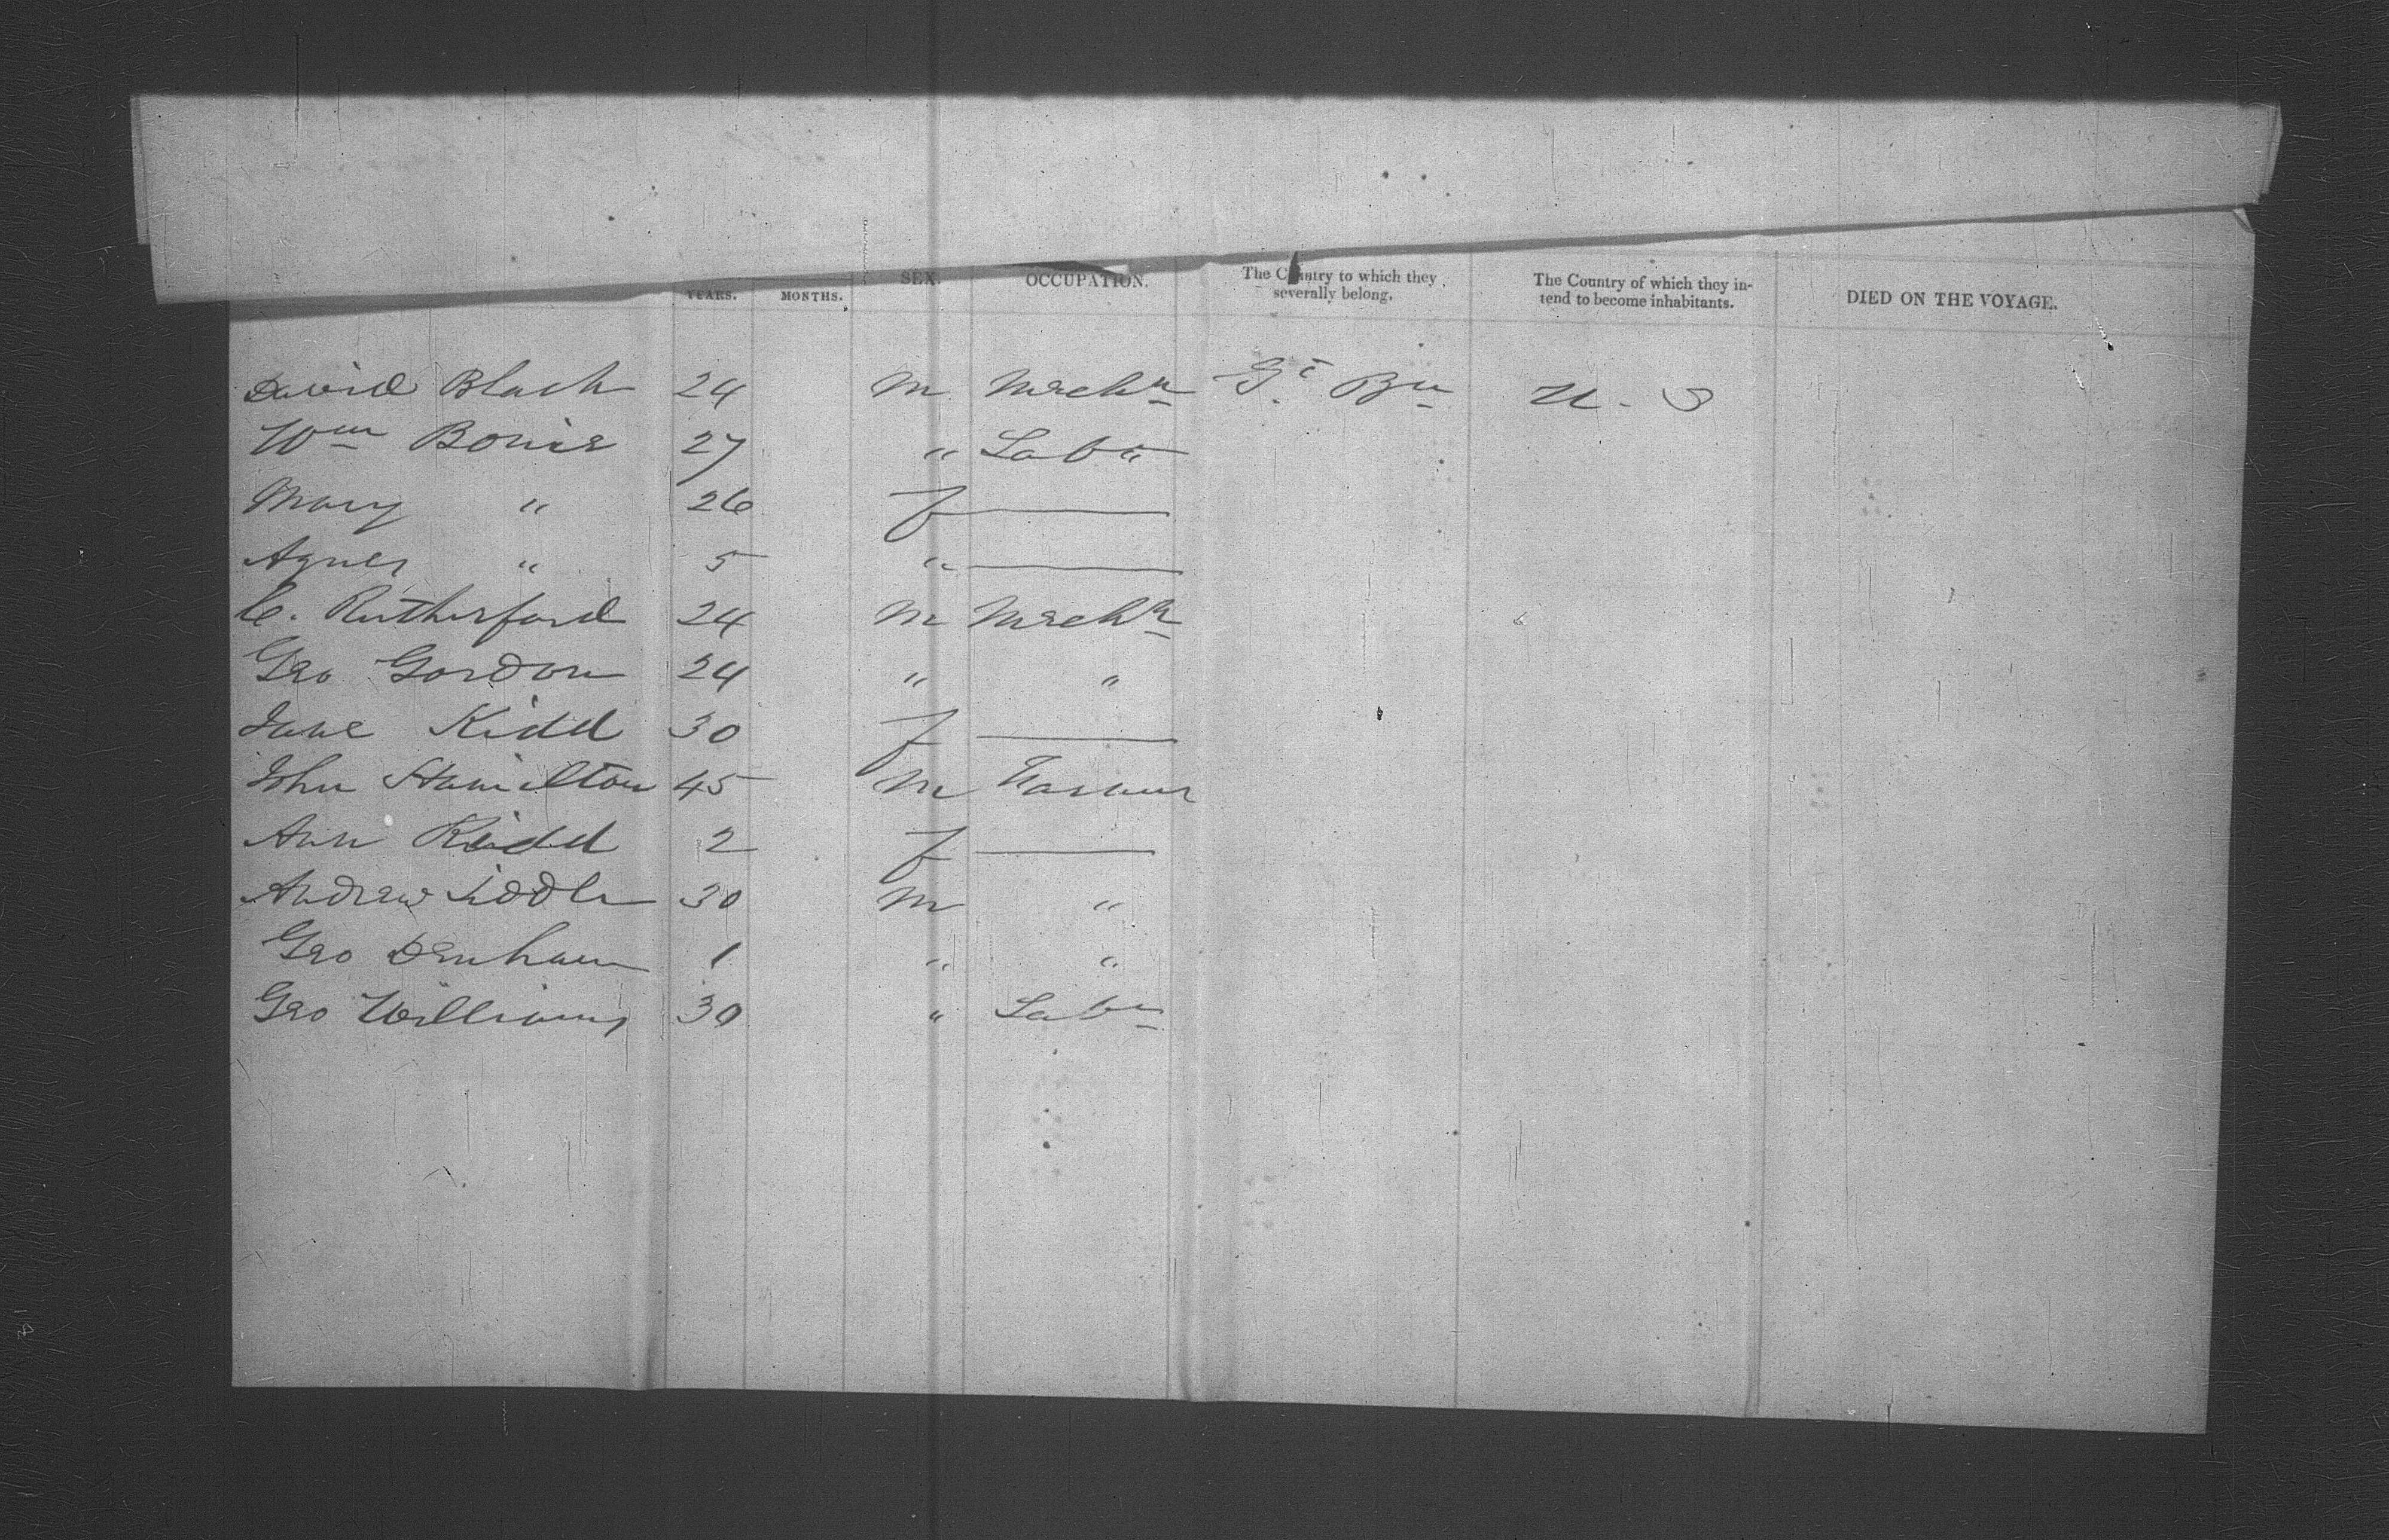 YEARS. MONTHS. SEX. OCCUPATION. The Country to which they severally belong. The Country of which they intend to become inhabitants. DIED ON THE VOYAGE.
David Black 24 M Mechn Gt Bn U. S
Wm Bowie 27 " Labr
Mary " 26 f
Agnes " 5 "
C. Rutherford 24 M Mechn
Geo Gordon 24 " "
Jane Kidd 30 f
John Hamilton 45 M Farmer
Ann Kidd 2 f
Andrew 30 M "
Geo Denham 1 " "
Geo Williams 30 " Labr